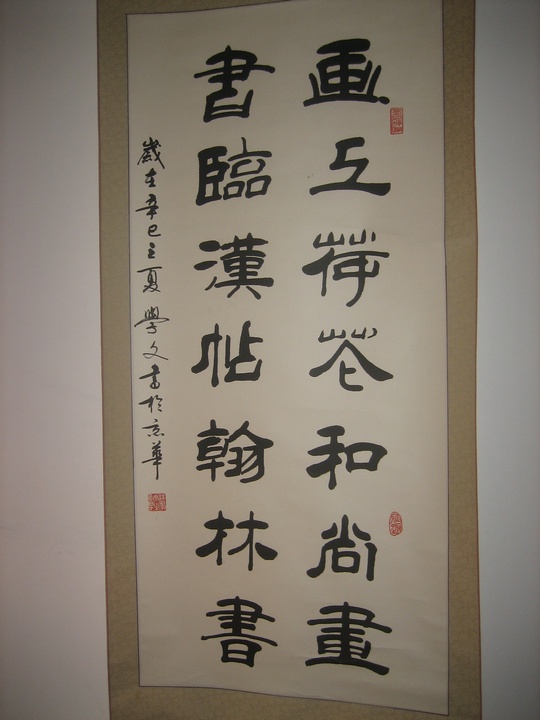 画上荷花和尚畫
書臨漢帖翰林書
歲在辛巳之夏學文書於京華